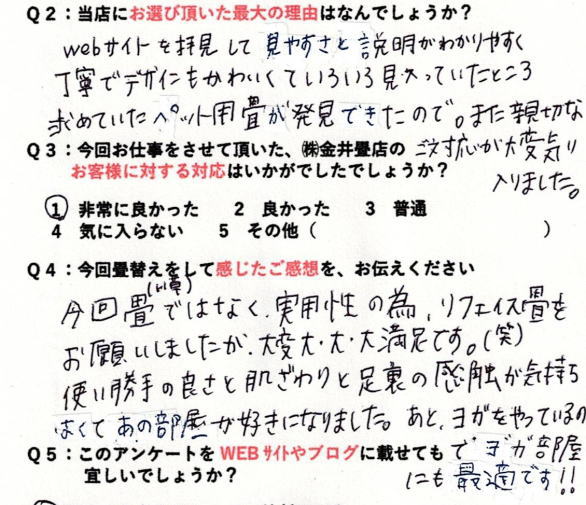 Q2：当店にお選び頂いた最大の理由はなんでしょうか？
webサイトを拝見して見やすさと説明がわかりやすく
丁寧でデザインもかわいくていろいろ見入っていたところ
求めていたペット用畳が発見できたので。また親切な
ご対応が大変気に
入りました。
Q3：今回お仕事をさせて頂いた、㈱金井畳店の
お客様に対する対応はいかがでしたでしょうか？
① 非常に良かった　2 良かった　3 普通
4 気に入らない　5 その他（　　　　　）
Q4：今回畳替えをして感じたご感想を、お伝えください
今回畳(い草)ではなく、実用性の為、リフェイス畳を
お願いしましたが、大変大・大・大満足です。(笑)
使い勝手の良さと肌ざわりと足裏の感触が気持ち
よくてあの部屋が好きになりました。あと、ヨガをやっているの
でヨガ部屋
にも最適です!!
Q5：このアンケートをWEBサイトやブログに載せても
宜しいでしょうか？